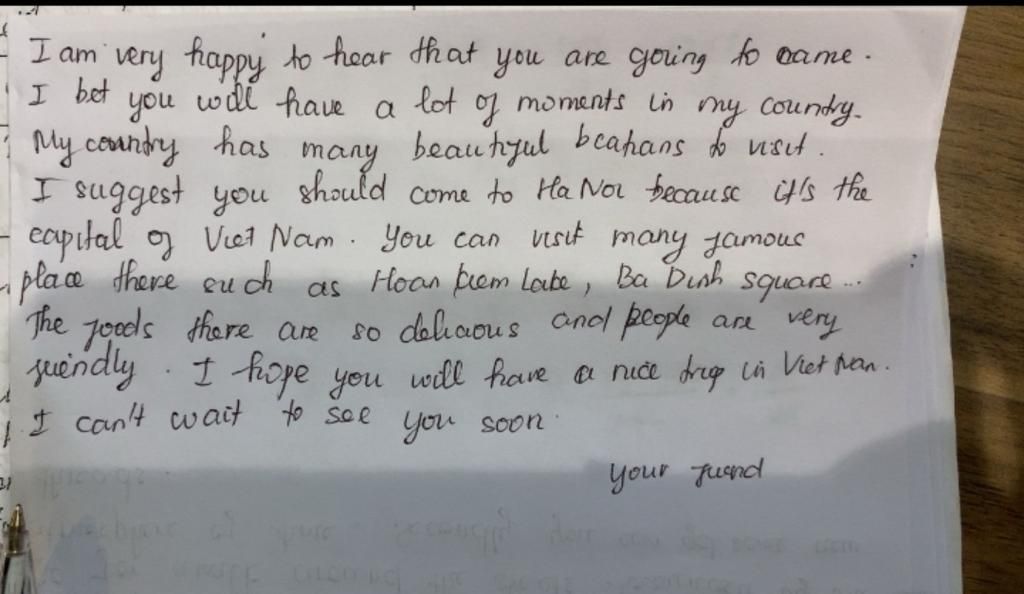 I am very happy to hear that you are going to came.
I bet you will have a lot of moments in my country.
My country has many beautiful locations to visit.
I suggest you should come to Ha Noi because it's the
capital of Viet Nam. You can visit many famous
place there such as Hoan Kiem Lake, Ba Dinh square...
The foods there are so delicious and people are very
friendly. I hope you will have a nice trip in Viet Nam.
I can't wait to see you soon.
your friend